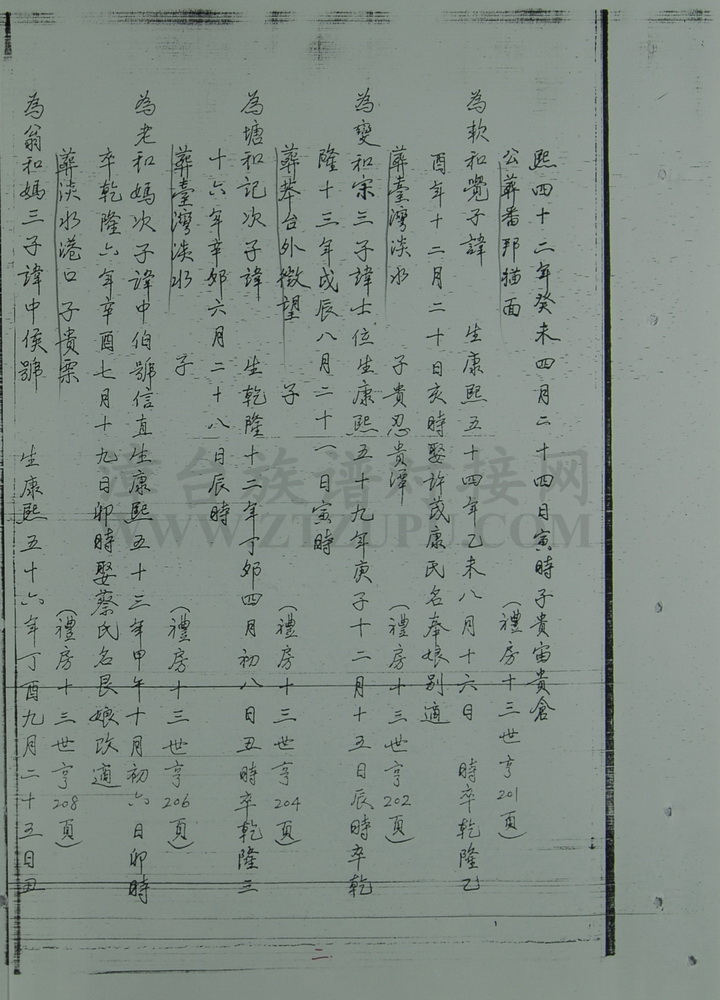 熙四十二年癸未四月二十四日寅時子貴宙貴倉
公葬番邦猫面 (禮房十三世亨201頁)
為軟和覺子諱 生康熙五十四年乙未八月十六日 時卒乾隆乙
酉年十二月二十日亥時娶許茂康氏名奉娘别適
葬臺灣淡水 子貴忍貴潭 (禮房十三世亨202頁)
為變和宗三子諱士位生康熙五十九年庚子十二月十五日辰時卒乾
隆十三年戊辰八月二十一日寅時
葬举台外徴望 子 (禮房十三世亨204頁)
為塘和記次子諱 生乾隆十二年丁卯四月初八日丑時卒乾隆三
十六年辛卯六月二十八日辰時
葬臺灣淡水 子 (禮房十三世亨206頁)
為老和媽次子諱中伯號信直生康熙五十三年甲午十月初六日卯時
卒乾隆六年辛酉七月十九日卯時娶蔡氏名艮娘改適
葬淡水港口子貴栗 (禮房十三世亨208頁)
為翁和媽三子諱中侯號 生康熙五十六年丁酉九月二十五日丑
二
台族谱对接网
WWW.ZTZUPU.COM